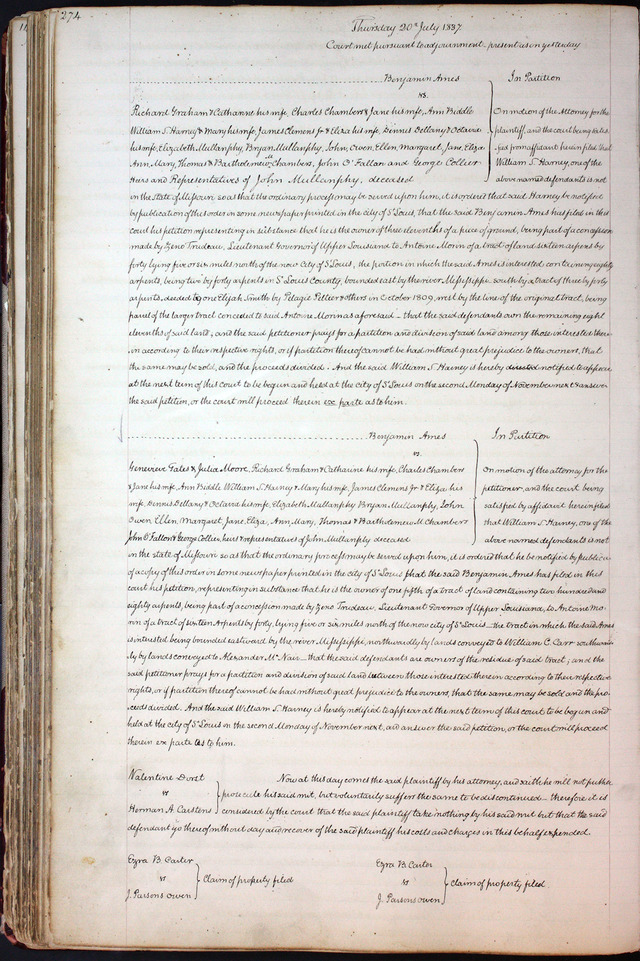 274
Thursday 20th July 1837
Court met pursuant to adjournment - present as on yesterday
Benjamin Ames
vs.
In Partition
Richard Graham & Catharine his wife, Charles Chambers & Jane his wife, Ann Biddle
William S. Harney & Mary his wife, James Clemens Jr & Eliza his wife, Dennis Dellany & Octavia
his wife, Elizabeth Mullanphy, Bryan Mullanphy, John, Owen, Ellen, Margaret, Jane, Eliza
Ann, Mary, Thomas & Bartholemew M Chambers, John O'Fallon and George Collier
Heirs and Representatives of John Mullanphy, deceased
On motion of the Attorney for the
plaintiff, and the court being satis-
fied from affidavit herein filed that
William S. Harney, one of the
above named defendants is not
in the State of Missouri so as that the ordinary process may be served upon him, it is ordered that said Harney be notified
by publication of this order in some newspaper printed in the city of St Louis, that the said Benjamin Ames has filed in this
court his petition representing in substance that he is the owner of three elevenths of a piece of ground, being part of a concession
made by Zeno Trudeau, Lieutenant Governor of Upper Louisiana to Antoine Morin of a tract of land sixteen arpens by
forty lying five or six miles north of the now City of St Louis, the portion in which the said Ames is interested containing eighty
arpents, being two by forty arpents in St Louis County, bounded east by the river Mississippi - south by a tract of three by forty
arpents, deeded by one Elijah Smith by Pelagie Pellier & others in October 1809, west by the line of the original tract, being
parcel of the larger tract conceded to said Antoine Morin as aforesaid - that the said defendants own the remaining eight
elevenths of said land, and the said petitioner prays for a partition and division of said land among those interested there-
in according to their respective rights, or if partition thereof cannot be had without great prejudice to the owners, that
the same may be sold, and the proceeds divided. And the said William S. Harney is hereby directed notified to appear
at the next term of this court to be begun and held at the city of St Louis on the second Monday of November next & answer
the said petition, or the court will proceed therein ex parte as to him.
Benjamin Ames
vs.
In Partition
Genevieve Gates & Julia Moore, Richard Graham & Catharine his wife, Charles Chambers
& Jane his wife, Ann Biddle William S. Harney & Mary his wife, James Clemens Jr & Eliza his
wife, Dennis Dellany & Octavia his wife, Elizabeth Mullanphy Bryan Mullanphy, John
Owen, Ellen, Margaret, Jane, Eliza, Ann, Mary, Thomas & Bartholemew M Chambers
John O'Fallon & George Collier, heirs & representatives of John Mullanphy deceased
On motion of the attorney for the
petitioner, and the court being
satisfied by affidavit herein filed
that William S. Harney, one of the
above named defendants is not
in the state of Missouri so as that the ordinary process may be served upon him, it is ordered that he be notified by publication
of a copy of this order in some newspaper printed in the city of St Louis that the said Benjamin Ames has filed in this
court his petition, representing in substance that he is the owner of one fifth of a tract of land containing two hundred and
eighty arpents, being part of a concession made by Zeno Trudeau, Lieutenant Governor of Upper Louisiana, to Antoine Mo-
rin of a tract of sixteen Arpents by forty, lying five or six miles north of the now city of St Louis - the tract in which the said Ames
is interested being bounded eastward by the river Mississippi northwardly by lands conveyed to William C. Carr southward-
ly by lands conveyed to Alexander McNair - that the said defendants are owners of the residue of said tract; and the
said petitioner prays for a partition and division of said land between those interested therein according to their respective
rights, or if partition thereof cannot be had without great prejudice to the owners, that the same may be sold and the pro-
ceeds divided. And the said William S. Harney is hereby notified to appear at the next term of this court to be begun and
held at the city of St Louis in the second Monday of November next, and answer the said petition, or the court will proceed
therein ex parte as to him.
Valentine Dorst
vs
Herman A. Carstens
Now at this day comes the said plaintiff by his attorney, and saith he will not further
prosecute his said suit, but voluntarily suffers the same to be discontinued - therefore it is
considered by the court that the said plaintiff take nothing by his said suit but that the said
defendant go thereof without day and recover of the said plaintiff his costs and charges in this behalf expended.
Ezra B. Carter
vs
J. Parsons Owen
Claim of property filed
Ezra B. Carter
vs
J. Parsons Owen
Claim of property filed.